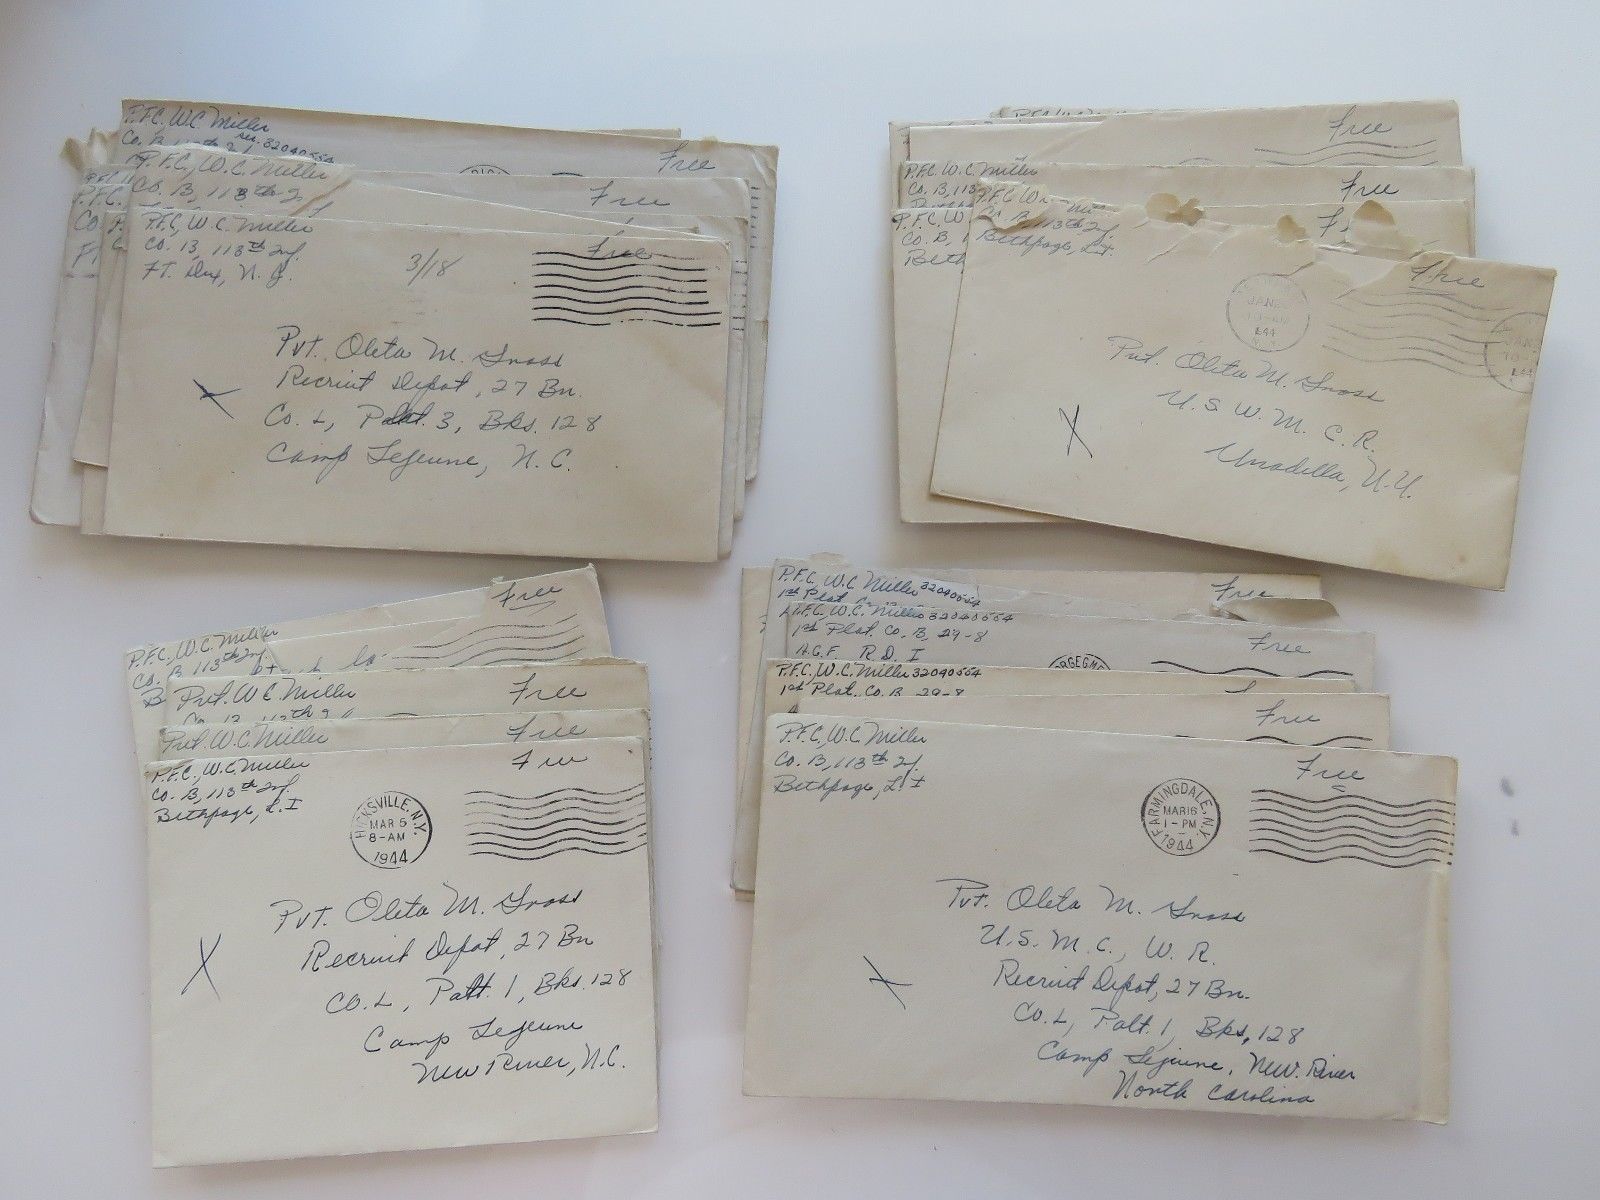 P.F.C. W.C. Miller
Co. B 113th Inf. ser. 32040554
Free
P.F.C. W.C. Miller
Co. B, 113th I
Free
P.F.C.
Co.
Ft
P.F.C., W.C. Miller
Co. B, 113th Inf.
Ft. Dix, N.J.
3/18
Free
Pvt. Oleta M. Gross
Recruit Depot, 27 Bn.
Co. L, Platt. 3, Bks. 128
X
Camp Lejeune, N.C.
Free
P.F.C. W.C. Miller
Co. B, 113
Free
P.F.C. W
Co. B,
Beth
P.F.C. W.
Co. B, 113th Inf.
Bethpage, L.I.
Free
JAN
1944
Pvt. Oleta M. Gross
U.S.W.M.C.R.
X
Unadilla, N.Y.
Free
P.F.C., W.C. Miller
Co. B 113th Inf.
B
Pvt. W.C. Miller
Free
Pvt. W.C. Miller
Free
P.F.C., W.C. Miller
Co. B, 113th Inf.
Bethpage, L.I
Free
HICKSVILLE, N.Y.
MAR 5
8-AM
1944
Pvt. Oleta M. Gross
Recruit Depot, 27 Bn
Co. L, Platt. 1, Bks. 128
X
Camp Lejeune
New River, N.C.
P.F.C., W.C. Miller 32040554
1st Plat
Free
P.F.C., W.C. Miller 32040554
1st Plat. Co. B, 29-8
A.G.F. R.D. I
Free
ORGE G. M
P.F.C., W.C. Miller 32040554
1st Plat. Co. B 29-8
Free
P.F.C., W.C. Miller
Co. B, 113th Inf.
Bethpage, L.I
Free
FARMINGDALE, N.Y.
MAR 16
1-PM
1944
Pvt. Oleta M. Gross
U.S.M.C., W.R.
Recruit Depot, 27 Bn.
Co. L, Platt. 1, Bks, 128
X
Camp Lejeune, New River
North Carolina